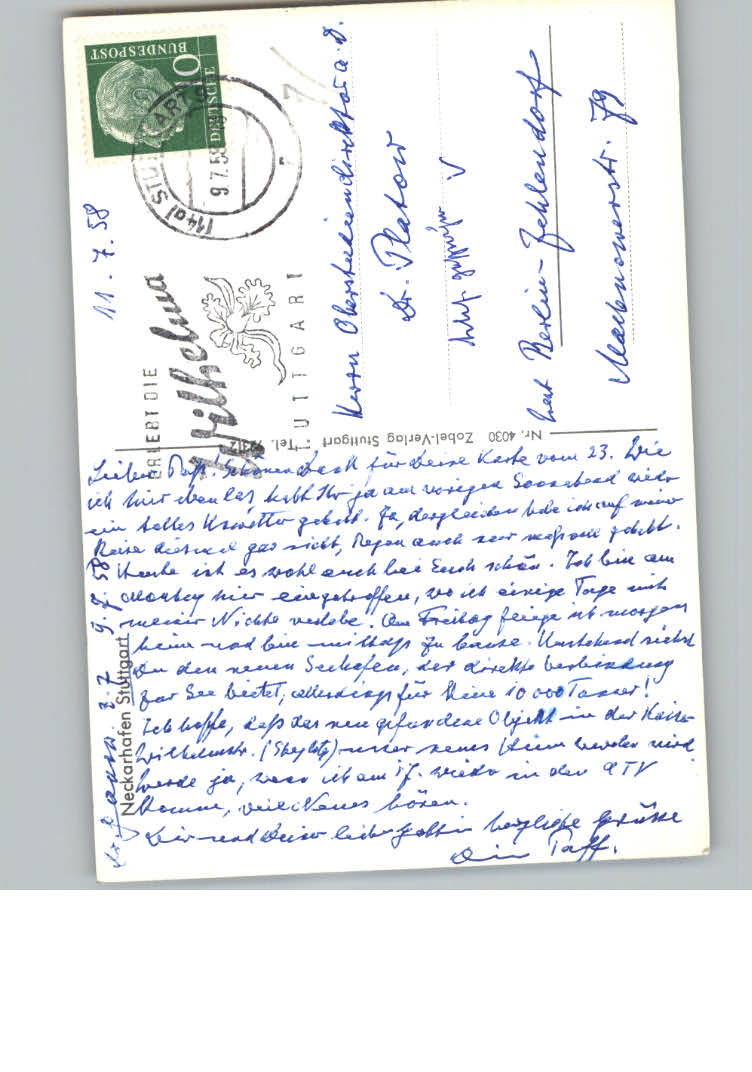 DEUTSCHE
BUNDESPOST
10
(14a) STUTTGART
9.7.58
ERLEBT DIE
Wilhelma
STUTTGART
11.7.58
Herrn Oberstudiendirektor a. D.
Dr. Platow
Berlin-Zehlendorf
Machnowerstr. 79
Nr. 4030 Zobel-Verlag Stuttgart Tel.
Neckarhafen Stuttgart
9.7.58
Lieber Schönen Dank für Deine Karte vom 23. Wie
ich hier eben las, habt Ihr ja am vorigen Sonnabend wieder
ein tolles Unwetter gehabt. Ja, dergleichen habe ich auf meiner
Reise diesmal gar nicht, Regen auch nur gehabt.
Heute ist es wohl auch bei Euch schön. Ich bin am
Montag hier eingetroffen, wo ich einige Tage mit
meiner Nichte verlebe. Am Freitag fliege ich morgens
heim und bin mittags zu Hause. Umstehend siehst
Du den neuen Seehafen, der direkte Verbindung
zur See bietet, allerdings für kleine 10 000 Tonner!
Ich hoffe, daß das neu gefundene Objekt in der Kaiser
Wilhelmstr. (Steglitz) unser neues Heim werden wird
werde ja, wenn ich am 17. wieder in den ATV
komme, viel Neues hören.
Dir und Deiner lieben Gattin herzliche Grüsse
Dein Taff.